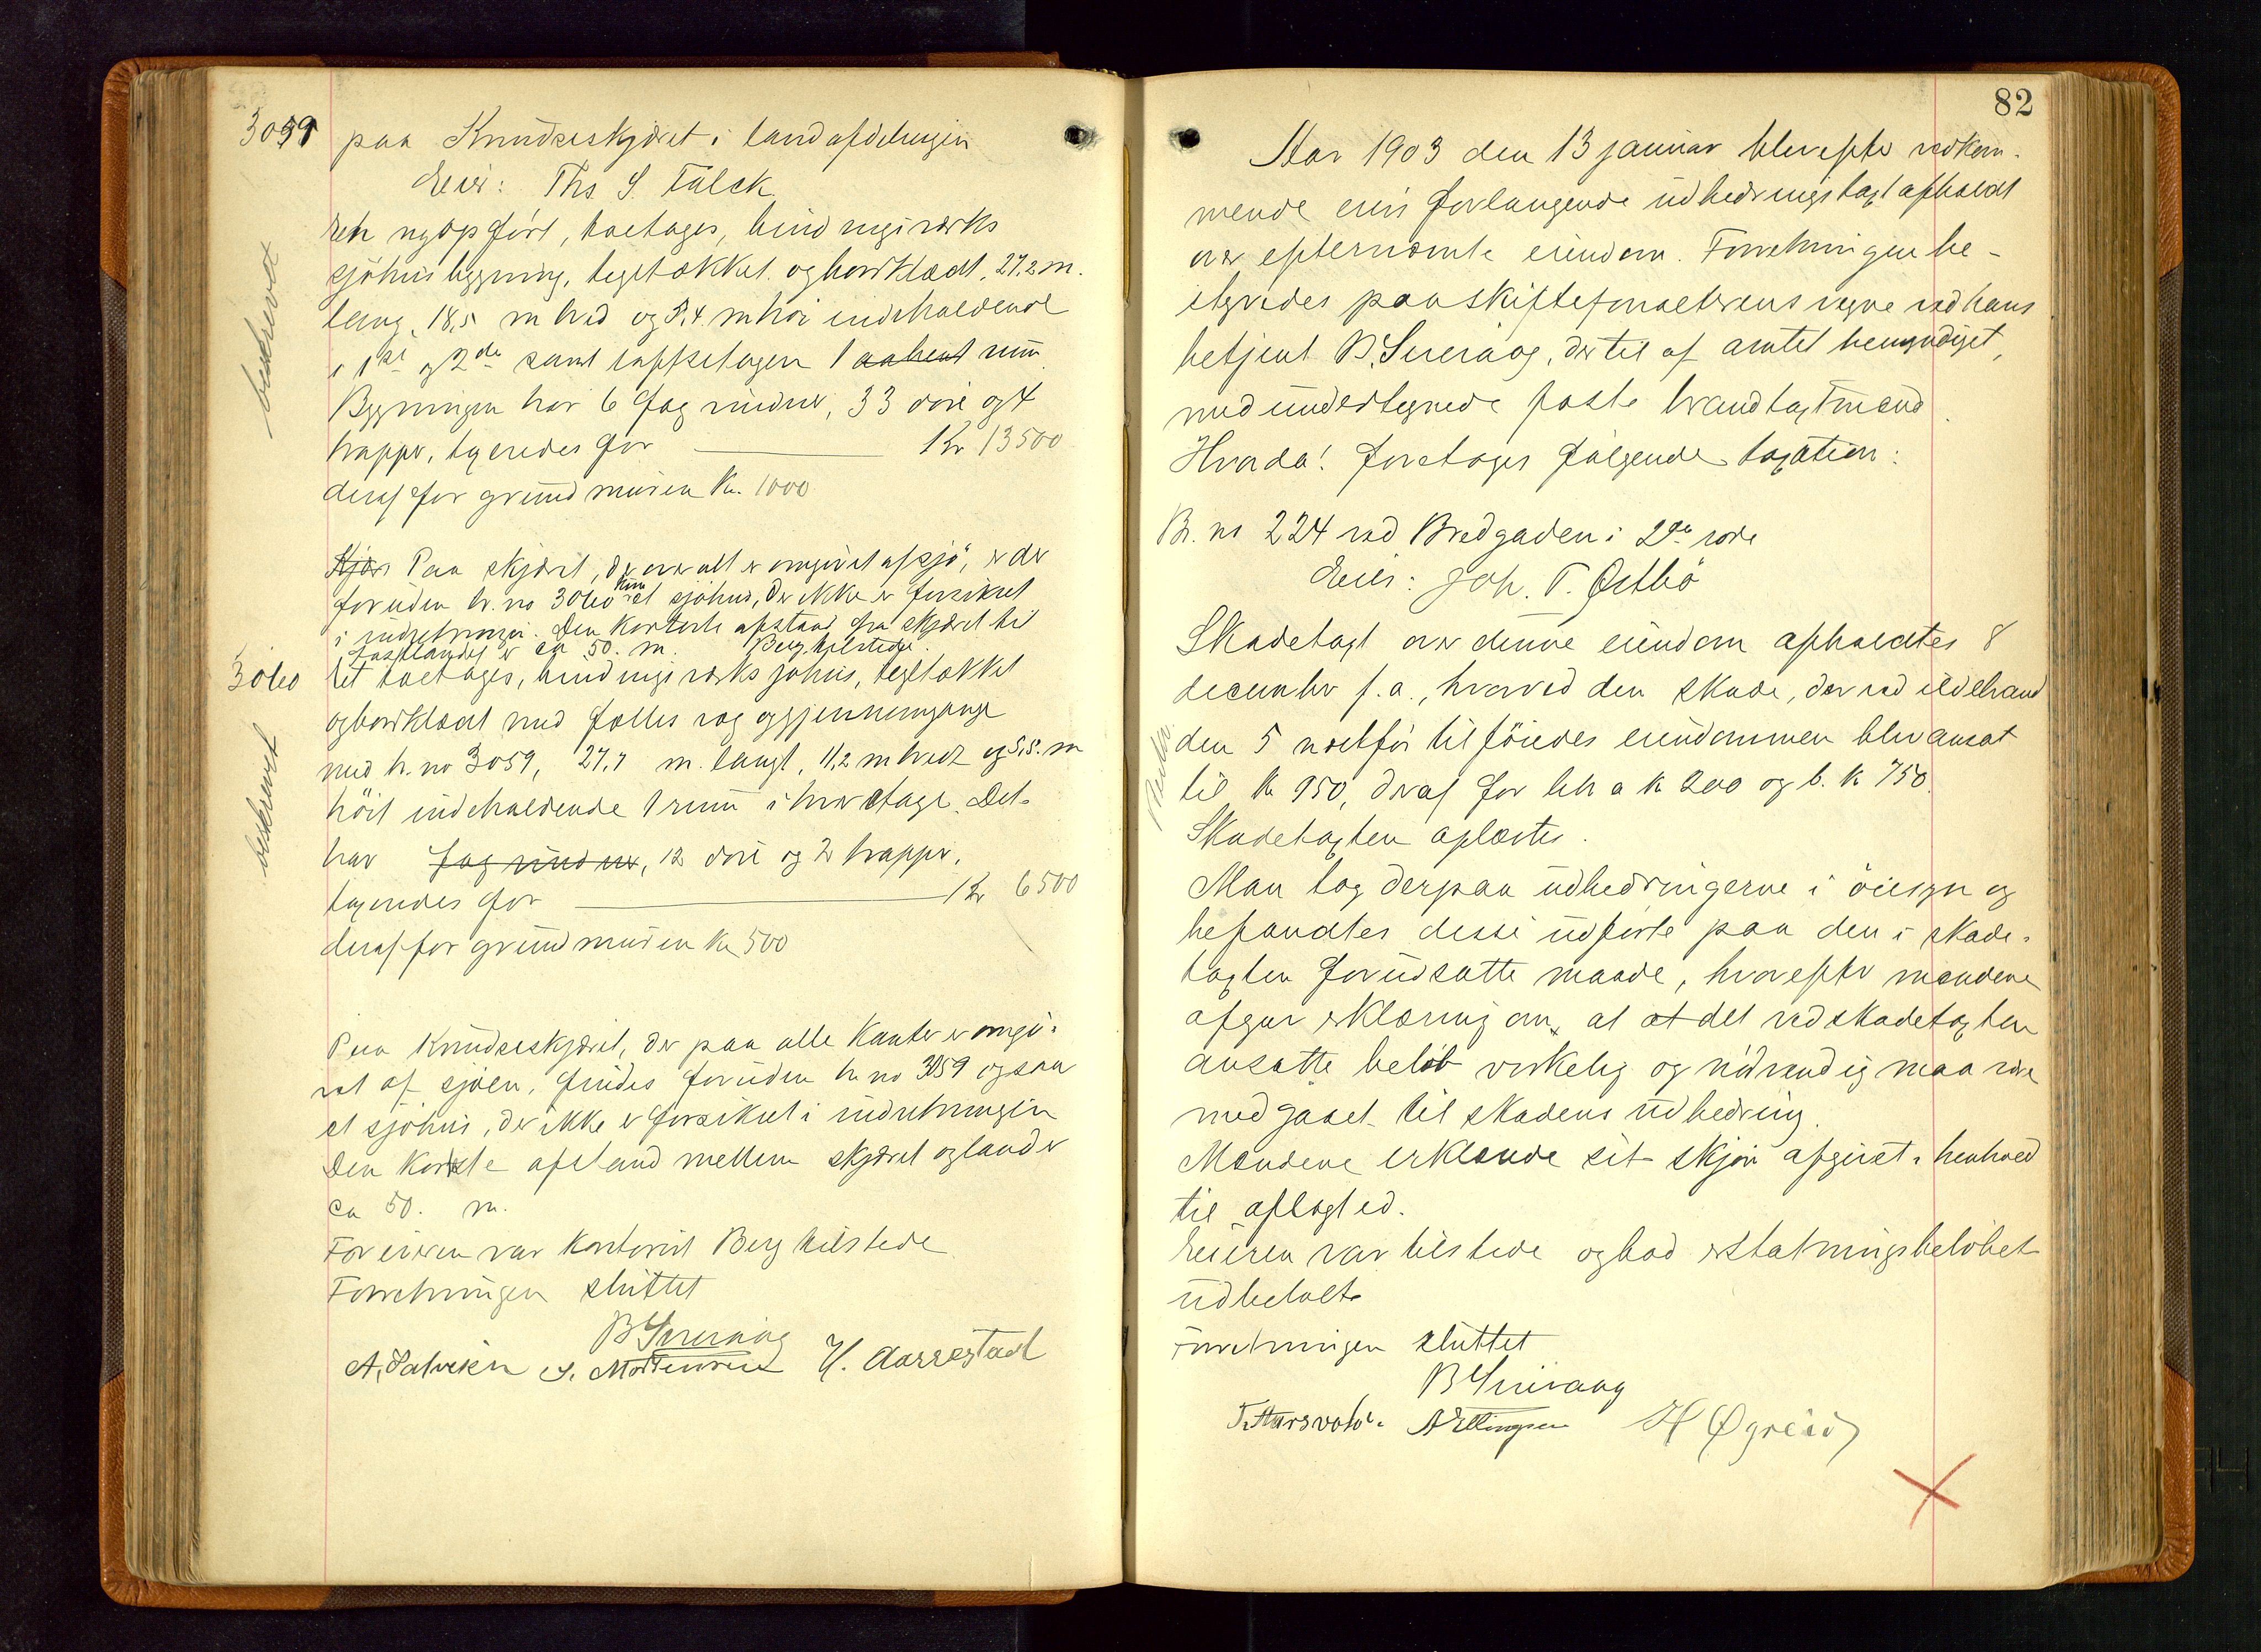 3059 paa Knudseskjæret i landafdelingen
Eier: Ths. S. Falck
beskrevet
En nyopført, toetages, bindingsværks
sjøhusbygning, tegltækket og bordklædt, 27,2 m.
lang, 18,5 m bred og 8,4 m høi indeholdende
i 1ste og 2den samt loftsetagen 1 aabent rum
Bygningen har 6 fag vinduer, 33 døre og 4
trapper, taxeredes for Kr 13500
deraf for grundmuren Kr. 1000
Skjær Paa skjæret, der overalt er omgivet af sjø, er der
foruden br. no 3060 kun et sjøhus, der ikke er forsikret
i indretningen. Den korteste afstand fra skjæret til
fastlandet er ca 50. m. Berg tilstede.
3060 Et toetages, bindingsværks sjøhus, tegltækket
beskrevet
og bordklædt med fælles væg og gjennemgange
med br. no 3059, 27,7 m. langt, 11,2 m bredt og 5,5. m
høit indeholdende 1 rum i hver etage. Det
har fag vinduer, 12 døre og 2 trapper.
taxeredes for Kr 6500
deraf for grundmuren Kr 500
Paa Knudseskjæret, der paa alle kanter er omgi-
vet af sjøen, findes foruden br no 3059 ogsaa
et sjøhus, der ikke er forsikret i indretningen
Den korteste afstand mellem skjæret og land er
ca 50. m.
For eieren var kontorist Berg tilstede
Forretningen sluttet
B Sververaag
A. Salvesen S. Mortensen H. Aarrestad
82
Aar 1903 den 13 januar blev efter vedkom-
mende eiers forlangende udbedringstaxt afholdt
over efternævnte eiendom. Forretningen be-
styredes paa skifteforvalterens vegne ved hans
betjent B. Sververaag, dertil af amtet bemyndiget,
med undertegnede faste brandtaxtmænd.
Hvorda! foretoges følgende taxation:
Br. no 224 ved Bredgaden i 2den rode
Eier: Joh. T. Østbø
Skadetaxt over denne eiendom afholdtes 8
december f. a., hvorved den skade, der ved ildebrand
den 5 næstfør tilføiedes eiendommen blev ansat
til kr 950, deraf for litr a kr 200 og b. kr 750.
Skadetaxten oplæstes.
Man tog derpaa udbedringerne i øiesyn og
befandtes disse udførte paa den i skade-
taxten forudsatte maade, hvorefter mændene
afgav erklæring om, at at det ved skadetaxten
ansatte beløb virkelig og nødvendig maa være
medgaaet til skadens udbedring.
Mændene erklærede sit skjøn afgivet i henhold
til aflagt ed.
Eieren var tilstede og bad erstatningsbeløbet
udbetalt
Forretningen sluttet
B Sververaag
A Ellingsen H Øgreid